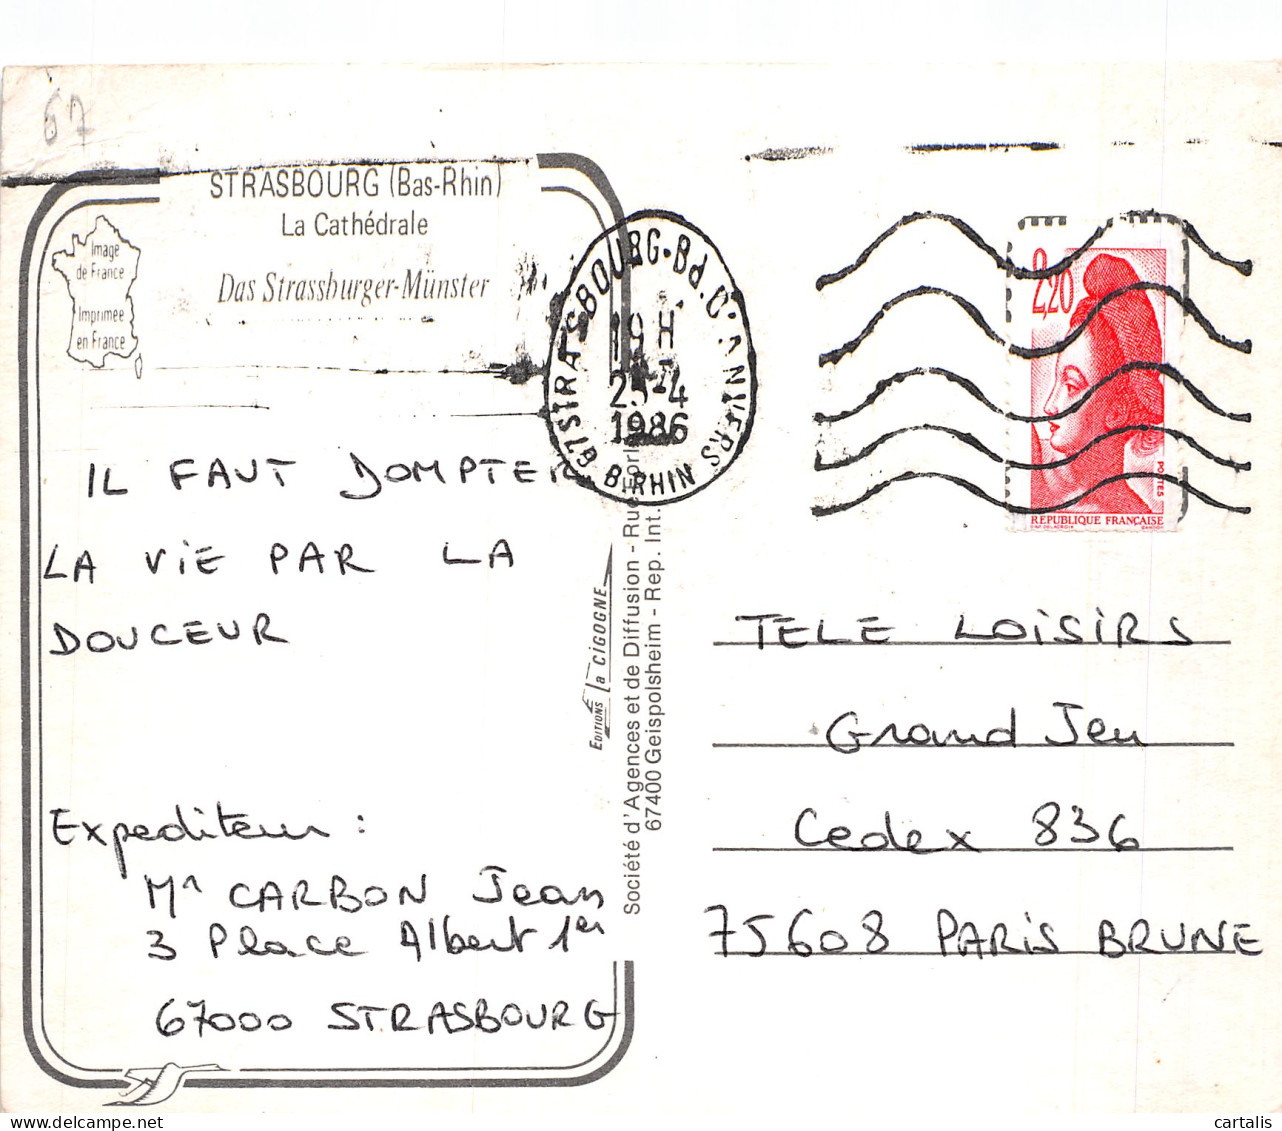 67
STRASBOURG (Bas-Rhin)
La Cathédrale
Das Strassburger-Münster
Image
de France
Imprimée
en France
67 STRASBOURG-Bd. D'ANVERS
19 H
25-4
1986
B-RHIN
2,20
POSTES
REPUBLIQUE FRANÇAISE
IL FAUT DOMPTER
LA VIE PAR LA
DOUCEUR
Expediteur :
Mr CARBON Jean
3 Place Albert 1er
67000 STRASBOURG
EDITIONS la CIGOGNE
Société d'Agences et de Diffusion - Rue
67400 Geispolsheim - Rep. Int.
TELE LOISIRS
Grand Jeu
Cedex 836
75608 PARIS BRUNE
www.delcampe.net
cartalis